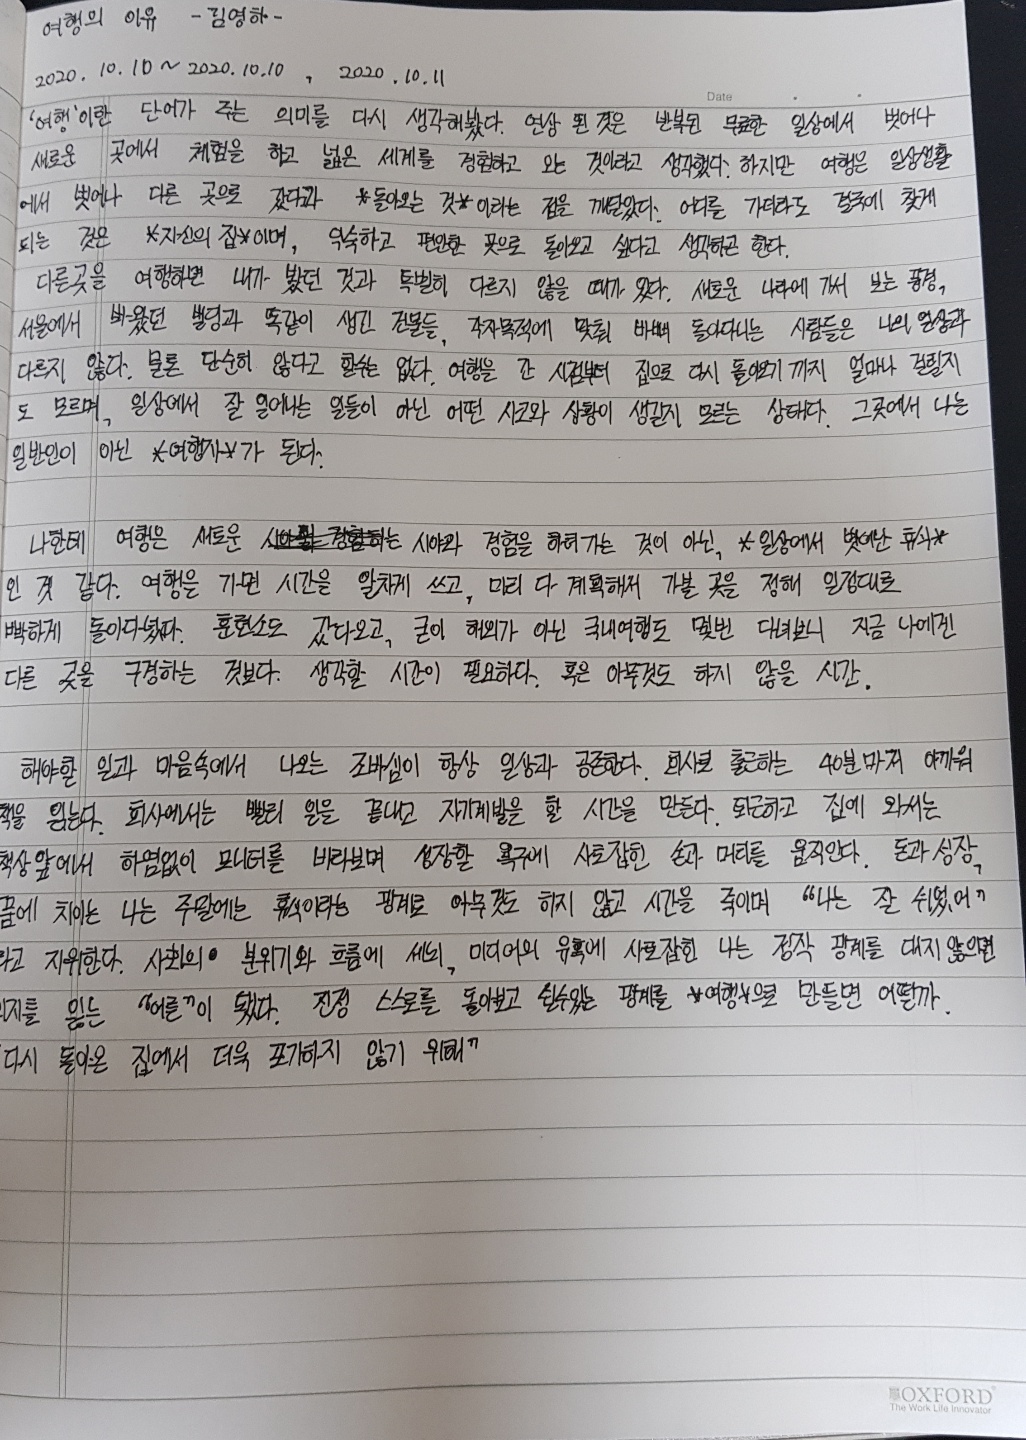 여행의 이유 -김영하-
2020. 10. 10 ~ 2020. 10. 10 , 2020. 10. 11
Date
'여행'이란 단어가 주는 의미를 다시 생각해봤다. 연상 된 것은 반복된 무료한 일상에서 벗어나
새로운 곳에서 체험을 하고 넓은 세계를 경험하고 오는 것이라고 생각했다. 하지만 여행은 일상생활
에서 벗어나 다른 곳으로 갔다과 *돌아오는 것* 이라는 점을 깨달았다. 어디를 가더라도 결국에 찾게
되는 것은 *자신의 집*이며, 익숙하고 편안한 곳으로 돌아오고 싶다고 생각하곤 한다.
다른곳을 여행하면 내가 봤던 것과 특별히 다르지 않을 때가 있다. 새로운 나라에 가서 보는 풍경,
서울에서 봐왔던 빌딩과 똑같이 생긴 건물들, 각자목적에 맞춰 바삐 돌아다니는 사람들은 나의 일상과
다르지 않다. 물론 단순히 않다고 할수는 없다. 여행을 간 시점부터 집으로 다시 돌아오기 까지 얼마나 걸릴지
도 모르며, 일상에서 잘 일어나는 일들이 아닌 어떤 사고와 상황이 생길지 모르는 상태다. 그곳에서 나는
일반인이 아닌 *여행자*가 된다.
나한테 여행은 새로운 시야와 경험을 하러 가는 것이 아닌, *일상에서 벗어난 휴식*
인 것 같다. 여행을 가면 시간을 알차게 쓰고, 미리 다 계획해서 가볼 곳을 정해 일정대로
빡빡하게 돌아다녔다. 훈련소도 갔다오고, 굳이 해외가 아닌 국내여행도 몇번 다녀보니 지금 나에겐
다른 곳을 구경하는 것보다. 생각할 시간이 필요하다. 혹은 아무것도 하지 않을 시간.
해야할 일과 마음속에서 나오는 조바심이 항상 일상과 공존한다. 회사로 출근하는 40분마저 아까워
책을 읽는다. 회사에서는 빨리 일을 끝내고 자기계발을 할 시간을 만든다. 퇴근하고 집에 와서는
책상 앞에서 하염없이 모니터를 바라보며 성장할 욕구에 사로잡힌 손과 머리를 움직인다. 돈과 성장,
꿈에 치이는 나는 주말에는 휴식이라는 핑계로 아무것도 하지 않고 시간을 죽이며 "나는 잘 쉬었어"
라고 자위한다. 사회의 분위기와 흐름에 세뇌, 미디어의 유혹에 사로잡힌 나는 정작 핑계를 대지 않으면
의지를 잃는 "어른"이 됐다. 진정 스스로를 돌아보고 쉴수있는 핑계를 *여행*으로 만들면 어떨까.
"다시 돌아온 집에서 더욱 포기하지 않기 위해"
OXFORD
The Work Life Innovator